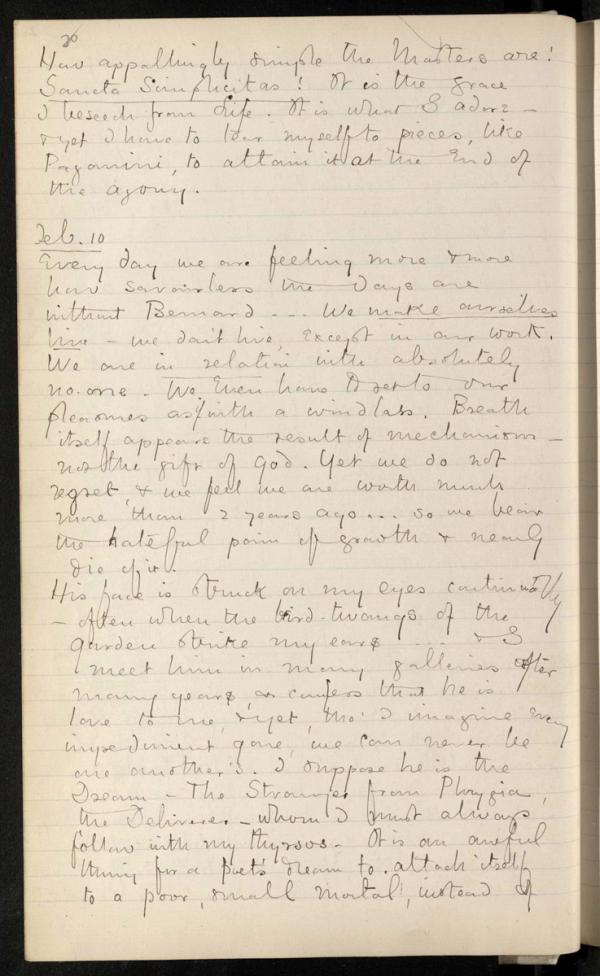 20
How appallingly simple the Masters are!
Sancta Simplicitas! It is the grace
I beseech from Life. It is what I adore –
& yet I have to tear myself to pieces, like
Paganini, to attain it at the End of
the agony.
Feb. 10
Every day we are feeling more & more
how savourless the Days are
without Bernard ... We make ourselves
live – we don't live, except in our work.
We are in relation with absolutely
no-one. We Even have to set to our
pleasures as if with a windlass. Breath
itself appears the result of mechanism –
not the gift of God. Yet we do not
regret, & we feel we are worth much
more than 2 years ago ... so we bear
the hateful pain of growth & nearly
die of it.
His face is struck on my eyes continually
– often when the bird-twangs of the
garden strike my ears .... & I
meet him in many galleries after
many years, or confess that he is
love to me, & yet, tho' I imagine every
impediment gone, we can never be
one another's. I suppose he is the
Dream – The Stranger from Phrygia,
the Deliverer – whom I must always
follow with my thyrsos. It is an awful
thing for a poet's dream to attach itself
to a poor, small mortal, instead of